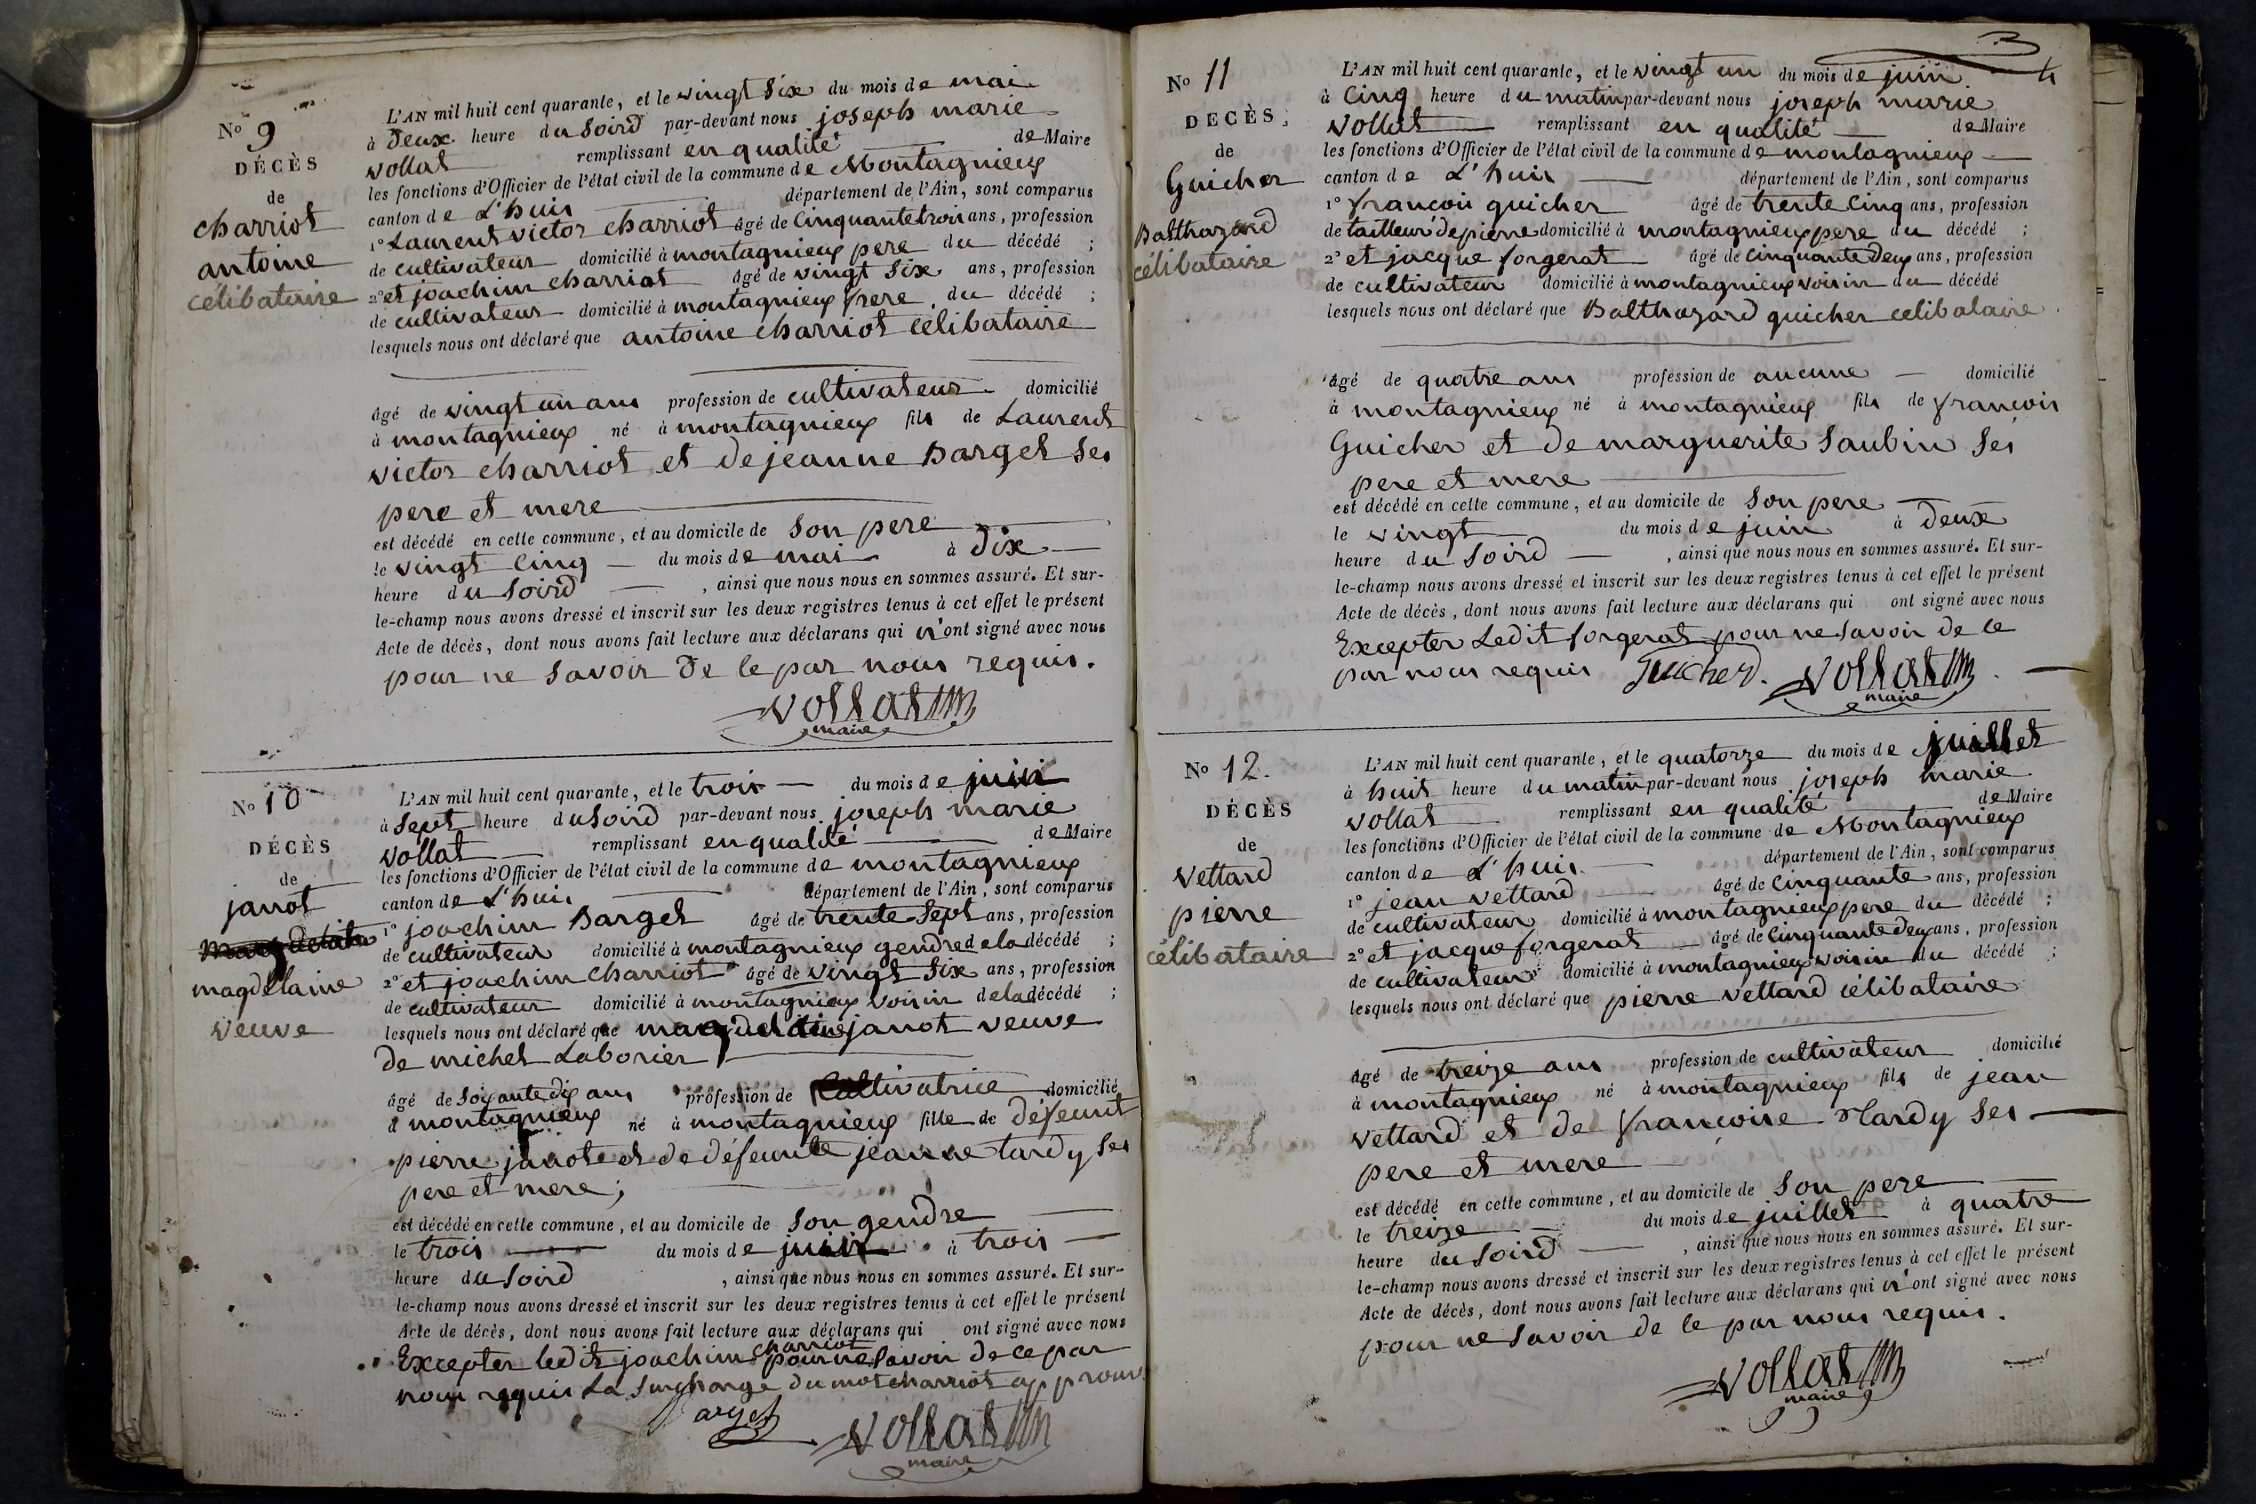 No 9
DÉCÈS
de
charriot
antoine
célibataire
L'AN mil huit cent quarante, et le vingt six du mois de mai
à deux heure du soird par-devant nous joseph marie
vollat remplissant en qualité de Maire
les fonctions d'Officier de l'état civil de la commune de Montagnieux
canton de L'huis département de l'Ain, sont comparus
1° Laurent victor charriot âgé de cinquante trois ans, profession
de cultivateur domicilié à montagnieux pere du décédé ;
2° et joachim charriot âgé de vingt six ans, profession
de cultivateur domicilié à montagnieux frere du décédé ;
lesquels nous ont déclaré que antoine charriot célibataire
âgé de vingt un ans profession de cultivateur domicilié
à montagnieux né à montagnieux fils de Laurent
victor charriot et de jeanne Barget ses
pere et mere
est décédé en cette commune, et au domicile de son pere
le vingt cinq du mois de mai à dix
heure du soird , ainsi que nous nous en sommes assuré. Et sur-
le-champ nous avons dressé et inscrit sur les deux registres tenus à cet effet le présent
Acte de décès, dont nous avons fait lecture aux déclarans qui n'ont signé avec nous
pour ne savoir de le par nous requis.
vollat
maire
No 10
DÉCÈS
de
janot
magdelaine
veuve
L'AN mil huit cent quarante, et le trois du mois de juin
à sept heure du soird par-devant nous joseph marie
vollat remplissant en qualité de Maire
les fonctions d'Officier de l'état civil de la commune de montagnieux
canton de L'huis département de l'Ain, sont comparus
1° joachim Barget âgé de trente sept ans, profession
de cultivateur domicilié à montagnieux gendre de la décédé ;
2° et joachim charriot âgé de vingt six ans, profession
de cultivateur domicilié à montagnieux voisin de la décédé ;
lesquels nous ont déclaré que magdelaine janot veuve
de michel Laborier
âgé de soixante dix ans profession de cultivatrice domicilié
à montagnieux né à montagnieux fille de défeunt
pierre janot et de défeunte jeanne tardy ses
pere et mere ;
est décédé en cette commune, et au domicile de son gendre
le trois du mois de juin à trois
heure du soird , ainsi que nous nous en sommes assuré. Et sur-
le-champ nous avons dressé et inscrit sur les deux registres tenus à cet effet le présent
Acte de décès, dont nous avons fait lecture aux déclarans qui ont signé avec nous
Excepter ledit joachim charriot pour ne savoir de ce par
nous requis La surcharge du mot charriot approuv
Barget vollat
maire
3
4
No 11
DÉCÈS,
de
Guicher
Balthazard
célibataire
L'AN mil huit cent quarante, et le vingt un du mois de juin
à cinq heure du matin par-devant nous joseph marie
vollat remplissant en qualité de Maire
les fonctions d'Officier de l'état civil de la commune de montagnieux
canton de L'huis département de l'Ain, sont comparus
1° françois guicher âgé de trente cinq ans, profession
de tailleur de pierre domicilié à montagnieux pere du décédé ;
2° et jacque forgerat âgé de cinquante deux ans, profession
de cultivateur domicilié à montagnieux voisin du décédé
lesquels nous ont déclaré que Balthazard guicher celibataire
âgé de quatre ans profession de aucune domicilié
à montagnieux né à montagnieux fils de françois
Guicher et de marguerite Saubin ses
pere et mere
est décédé en cette commune, et au domicile de son pere
le vingt du mois de juin à deux
heure du soird , ainsi que nous nous en sommes assuré. Et sur-
le-champ nous avons dressé et inscrit sur les deux registres tenus à cet effet le présent
Acte de décès, dont nous avons fait lecture aux déclarans qui ont signé avec nous
Excepter Ledit forgerat pour ne savoir de ce
par nous requis Guicherd. vollat
maire
No 12.
DÉCÈS
de
vettard
pierre
célibataire
L'AN mil huit cent quarante, et le quatorze du mois de juillet
à huit heure du matin par-devant nous joseph marie
vollat remplissant en qualité de Maire
les fonctions d'Officier de l'état civil de la commune de Montagnieux
canton de L'huis département de l'Ain, sont comparus
1° jean vettard âgé de cinquante ans, profession
de cultivateur domicilié à montagnieux pere du décédé ;
2° et jacque forgerat âgé de cinquante deux ans, profession
de cultivateur domicilié à montagnieux voisin du décédé ;
lesquels nous ont déclaré que pierre vettard célibataire
âgé de treize ans profession de cultivateur domicilié
à montagnieux né à montagnieux fils de jean
vettard et de françoise Hardy ses
pere et mere
est décédé en cette commune, et au domicile de son pere
le treize du mois de juillet à quatre
heure du soird , ainsi que nous nous en sommes assuré. Et sur-
le-champ nous avons dressé et inscrit sur les deux registres tenus à cet effet le présent
Acte de décès, dont nous avons fait lecture aux déclarans qui n'ont signé avec nous
pour ne savoir de le par nous requis.
vollat
maire